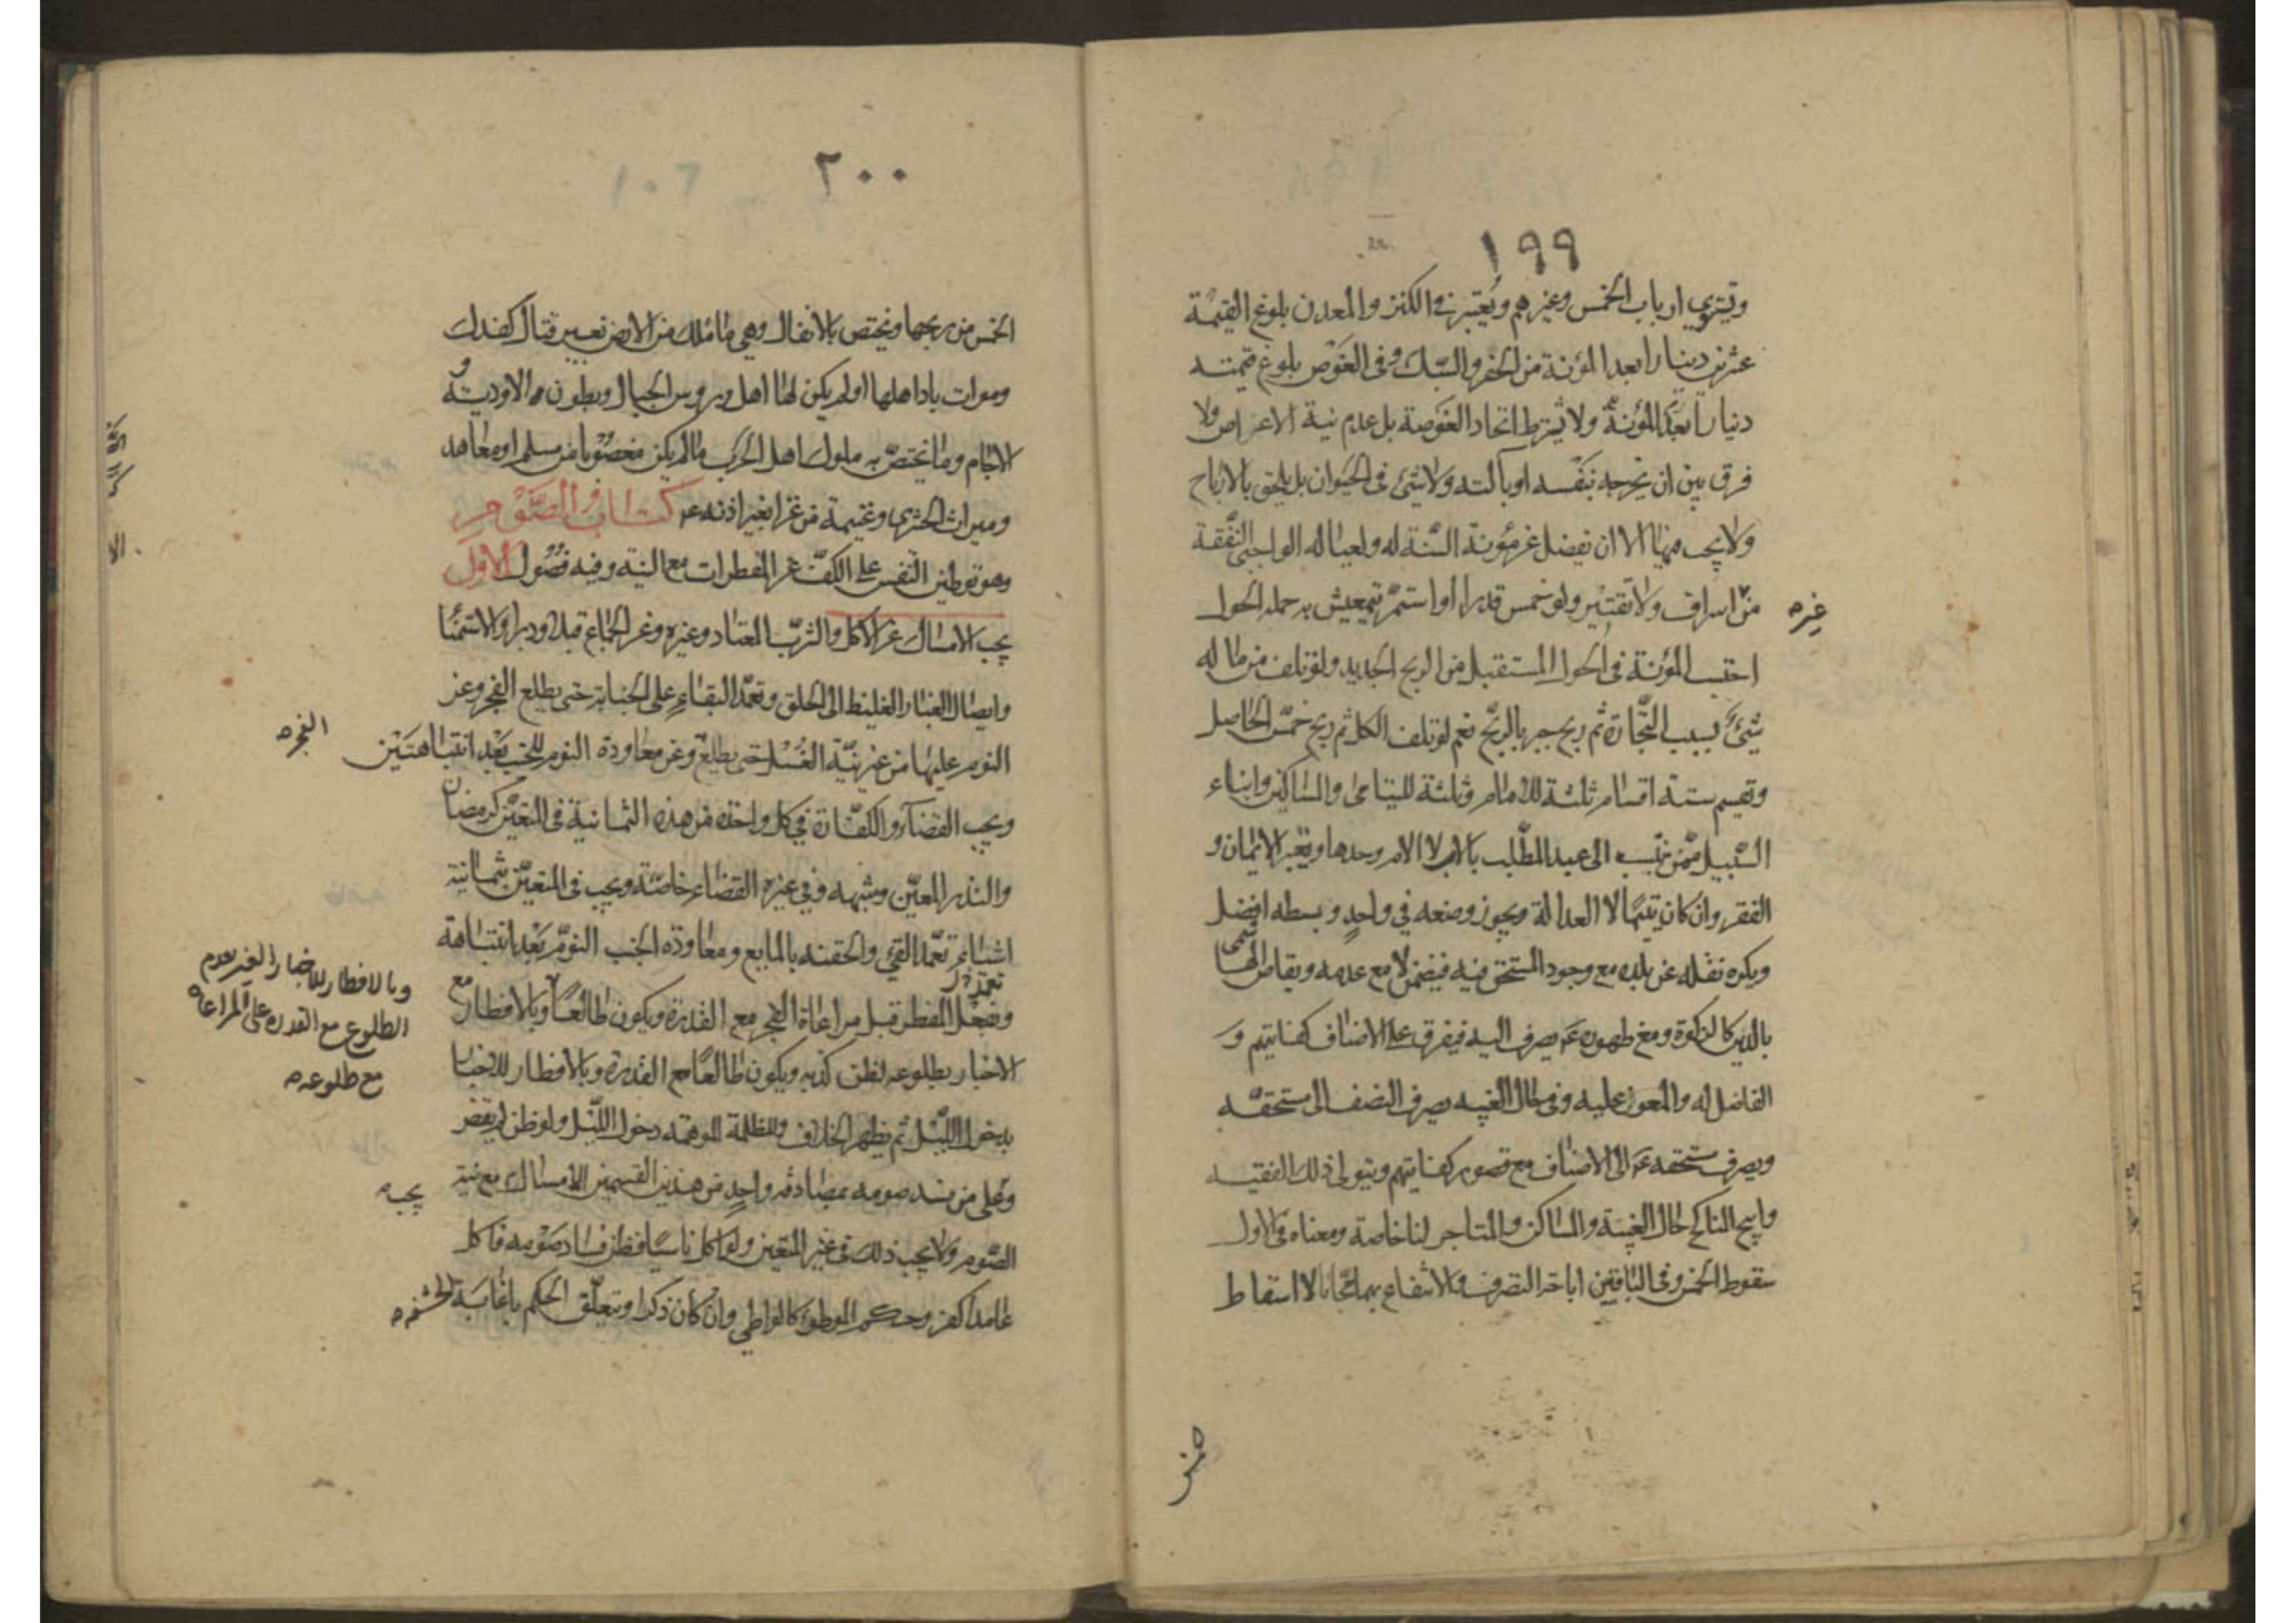 ١٩٩
ويستوي ارباب الخمس وغيرهم ويعتبر في الكنز والمعدن بلوغ القيمة
عشرين دينارا بعد المؤنة من الحفر والسبك وفي الغوص بلوغ قيمته
دينارا بعد المؤنة ولا يشترط اتحاد الغوصة بل عدم نية الاعراض ولا
فرق بين ان يخرجه بنفسه او بآلته ولا شئ في الحيوان بل يلحق بالارباح
ولا يجب فيها الا ان يفضل عن مؤونة السنة له ولعياله الواجبي النفقة
من اسراف ولا تقتير ولو خمس قدرا او استمر يتعيش به حمله الحول
غير
احتسب المؤنة في الحول المستقبل من الربح الجديد ولو تلف من ماله
شئ بسبب التجارة ثم ربح جبر بالربح نعم لو تلف الكل ثم ربح خمس الحاصل
وتقسم ستة اقسام ثلثة للامام وثلثة لليتامى والمساكين وابناء
السبيل ممن ينتسب الى عبد المطلب بالاب لا الام وحدها ويعتبر الايمان و
الفقر وان كان يتيما لا العدالة ويجوز وضعه في واحد وبسطه افضل
ويكره نقله عن بلده مع وجود المستحق فيه فيضمن لا مع عدمه ويقاص
بالدين كالزكوة ومع ظهوره ع يصرف اليه فيفرق على الاصناف كفايتهم و
الفاضل له والمعوز عليه وفي حال الغيبه يصرف النصف الى مستحقه
ويصرف مستحقه ع الى الاصناف مع قصور كفايتهم ويتولى ذلك الفقيه
وابيح المناكح حال الغيبة والمساكن والمتاجر لنا خاصة ومعناه في الاول
سقوط الخمس وفي الباقيين اباحة التصرف والانتفاع بهما مجانا لا اسقاط
٢٠٠
الخمس من ربحها ويختص بالانفال وهي ما ملك من الارض بغير قتال كفدك
وموات باد اهلها او لم يكن لها اهل ورؤس الجبال وبطون الاودية و
الاجام وما يختص به ملوك اهل الحرب ما لم يكن مغصوبا من مسلم او معاهد
وميراث الحشري وغنيمة من غزا بغير اذنه ع كتاب الصوم
وهو توطين النفس على الكف عن المفطرات مع النية وفيه فصول الاول
يجب الامساك عن الاكل والشرب المعتاد وغيره وعن الجماع قبلا ودبرا والاستمنا
وايصال الغبار الغليظ الى الحلق وتعمد البقاء على الجنابة حتى يطلع الفجر وعن
النوم عليها من غير نية الغسل حتى يطلع وعن معاودة النوم للجنب بعد انتباهتين
الفجر
ويجب القضاء والكفارة في كل واحد من هذه الثمانية في المتعين كرمضان
والنذر المعين وشبهه وفي غيره القضاء خاصة ويجب في المتعين بثمانية
اشياء تعمد القئ والحقنه بالمايع ومعاودة الجنب النوم بعد انتباهة
وفعل المفطر قبل مراعاة الفجر مع القدرة ويكون طالعا وبالافطار مع
وبالافطار للاخبار الغير بعدم
الطلوع مع القدرة على المراعاة
مع طلوعه
الاخبار بطلوعه لظن كذبه ويكون طالعا مع القدرة وبالافطار للاخبار
بدخول الليل ثم يظهر الخلاف وللظلمة الموهمه دخول الليل ولو ظن لم يفطر
وعلى من فسد صومه بمصادفة واحد من هذين القسمين الامساك مع نية
يجب
الصوم ولا يجب ذلك في غير المتعين ولو اكل ناسيا فظن فساد صومه فاكل
عامدا كفر وحكم الموطؤ كالواطي وان كان ذكرا ويتعلق الحكم باغابة الحشفه